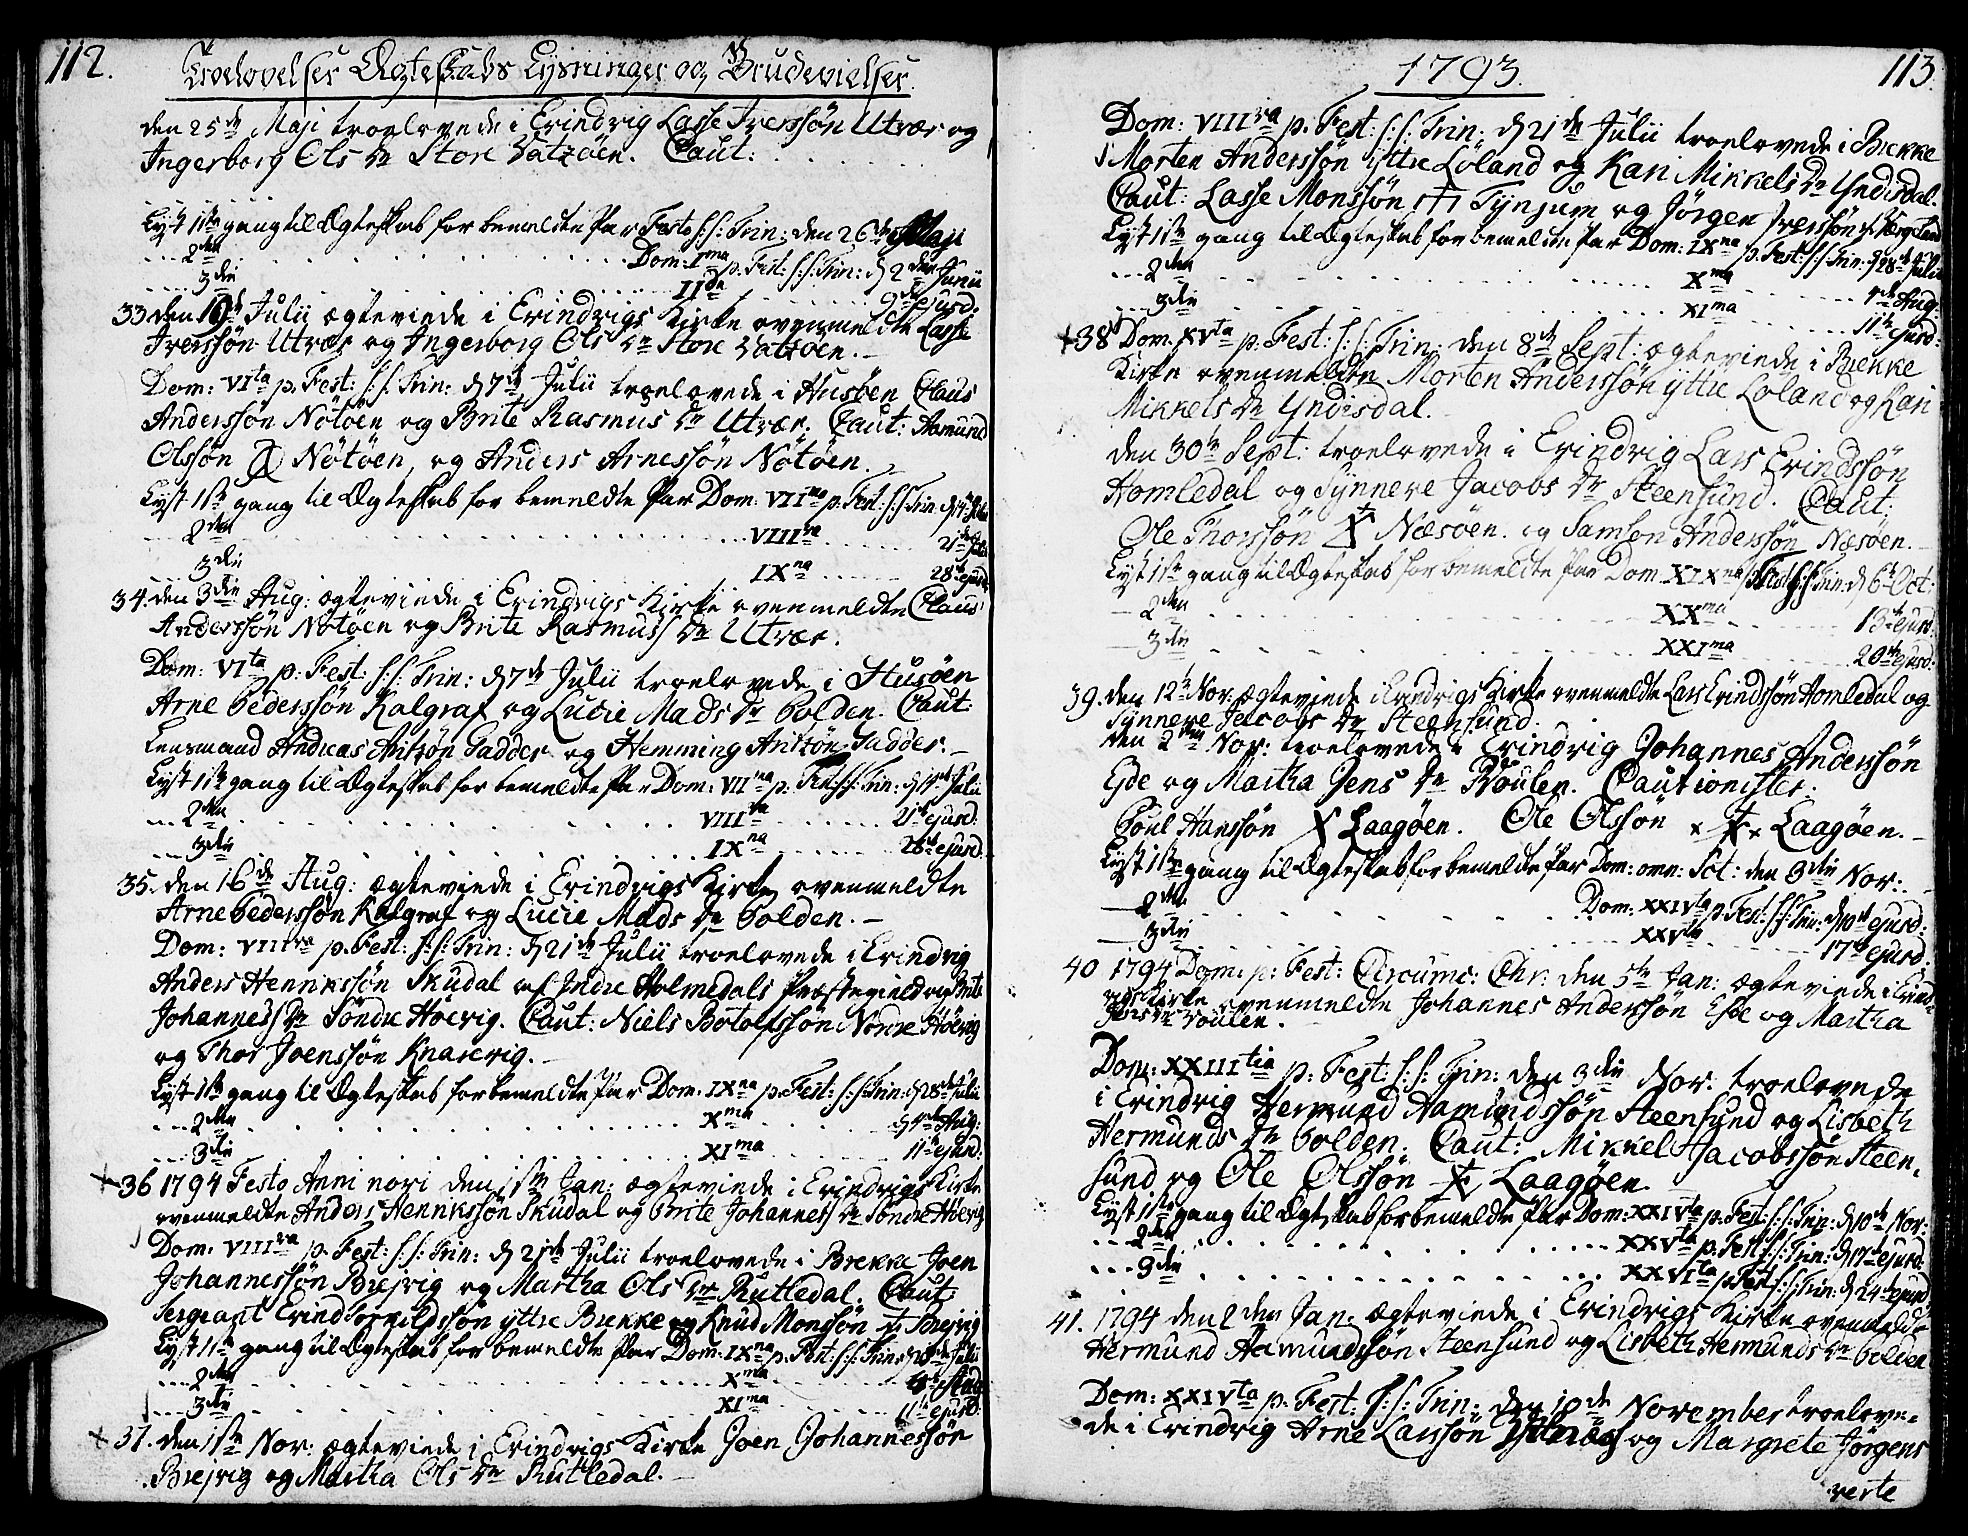 112.
Troelovelser Ægteskabs Lysninger og Brudevielser.
den 25de Maji troelovede i Evindvig Lasse Iverssøn Utvær og
Ingerborg Ols Dr Store Batzøen. Caut: . . . . . . .
Lyst 1ste gang til Ægteskab for bemeldte Par Festo S:S: Trin: den 26de Maji
2den . . . . Dom: Ima p. Fest: S:S: Trin: d 2den Junii
3die . . . . IIda . . . . 9de ejusd:
33. den Julii ægteviede i Evindvigs Kirke ovenmeldte Lasse
Iverssøn Utvær og Ingerborg Ols Dr Store Batzøen. –
Dom: VIta p. Fest: S:S: Trin: d 7de Julii troelovede i Husøen Claus
Anderssøn Nötöen og Brite Rasmus Dr Utvær. Caut: Aamund
Olssøn Nötöen, og Anders Arnessøn Nötöen.
Lyst 1ste gang til Ægteskab for bemeldte Par Dom: VIIma p. Fest: S:S: Trin: d 14de Julii
2den . . . . VIIIva . . . . 21de Julii
3die . . . . IXna . . . . 28de ejusd
34. den 3die Aug: ægteviede i Evindvigs Kirke ovenmeldte Claus
Anderssøn Nötöen og Brite Rasmus Dr Utvær.
Dom: VIta p. Fest: S:S: Trin: d 7de Julii troelovede i Husøen
Arne Pederssøn Kalgraf og Lucie Mads Dr Polden. Caut:
Lensmand Andreas Antzøn Gadder og Hemming Antzøn Gadder. –
Lyst 1ste gang til Ægteskab for bemeldte Par Dom: VIIma p. Fest: S:S: Trin: d 14de Julii
2den . . . . VIIIva . . . . 21de ejusd:
3die . . . . IXna . . . . 28de ejusd:
35. den 16de Aug: ægteviede i Evindvigs Kirke ovenmeldte
Arne Pederssøn Kalgraf og Lucie Mads Dr Polden. –
Dom: VIIIva p. Fest: S:S: Trin: d 21de Julii troelovede i Evindvig
Anders Henrikssøn Skudal af Indre Holmedals Præstegield og Brite
Johannes Dr Søndre Høevig. Caut: Niels Botolfssøn Nordre Høevig
og Thor Joenssøn Knarevig. –
Lyst 1ste gang til Ægteskab for bemeldte Par Dom: IXna p. Fest: S:S: Trin: d 28de Julii
2den . . . . Xma . . . . d 4de Aug:
3die . . . . XIma . . . . 11te ejusd:
+ 36 1794 Festo Anni novi den 1ste Jan: ægteviede i Evindvigs Kirke
ovenmeldte Anders Henrikssøn Skudal og Brite Johannes Dr Søndre Høevig
Dom: VIIIva p. Fest: S:S: Trin: d 21de Julii troelovede i Brekke Joen
Johannessøn Brejvig og Martha Ols Dr Rutledal. Caut:
Sergeant Erind Torkildssøn yttre Brekke og Knud Monssøn Brejvig
Lyst 1ste gang til Ægteskab for bemeldte Par Dom: IXna p. Fest: S:S: Trin: d 28de Julii
2den . . . . Xma . . . . 4de Aug
3die . . . . XIma . . . . 11te ejusd:
+ 37. den 1ste Nov: ægteviede i Evindvigs Kirke Joen Johannessøn
Brejvig og Martha Ols Dr Rutledal. –
1793.
113.
Dom: VIIIva p. Fest: S:S: Trin: d 21de Julii troelovede i Brekke
Morten Anderssøn yttre Löland og Kari Mikkels Dr Yndisdal.
Caut: Lasse Monssøn Tynjum og Jörgen Iverssøn
Lyst 1ste gang til Ægteskab for bemeldte Par Dom: IXna p. Fest: S:S: Trin: d 28de Julii
2den . . . . Xma . . . . 4de Aug:
3die . . . . XIma . . . . 11te ejusd:
+ 38 Dom: XVta p. Fest: S:S: Trin: den 8de Sept: ægteviede i Brekke
Kirke ovenmeldte Morten Anderssøn yttre Löland og Kari
Mikkels Dr Yndisdal.
den 30te Sept: troelovede i Evindvig Lars Erindssøn
Homledal og Synneve Jacobs Dr Steensund. Caut:
Ole Thorssøn Næsöen. og Samson Anderssøn Næsöen. –
Lyst 1ste gang til Ægteskab for bemeldte Par Dom XIXna p. Fest: S:S: Trin: d 6te Oct:
2den . . . . XXma . . . . 13de ejusd:
3die . . . . XXIma . . . . 20de ejusd:
39. den 12te Nov: ægteviede i Evindvigs Kirke ovenmeldte Lars Erindssøn Homledal og
Synneve Jacobs Dr Steensund.
den 2den Nov: troelovede i Evindvig Johannes Anderssøn
Eide og Martha Jens Dr Böulen. Cautionister:
Poul Hanssøn Laagöen. Ole Olssøn Laagöen. –
Lyst 1ste gang til Ægteskab for bemeldte Par Dom: omn: Sct: den 3die Nov:
2den . . . . Dom: XXIVta p. Fest: S:S: Trin: d 10de ejusd:
3die . . . . XXVta . . . . 17de ejusd:
40 1794 Dom: p: Fest: Circumc: Chr: den 5te Jan: ægteviede i Evind-
vigs Kirke ovenmeldte Johannes Anderssøn Eide og Martha
Jens Dr Böulen.
Dom: XXIIItia p. Fest: S:S: Trin: den 3die Nov: troelovede
i Evindvig Hermund Aamundssøn Steensund og Lisbeth
Hermunds Dr Polden. Caut: Mikkel Jacobssøn Steen-
sund og Ole Olssøn Laagöen.
Lyst 1ste gang til Ægteskab for bemeldte Par Dom: XXIVta p. Fest: S:S: Trin: d 10de Nov:
2den . . . . XXVta p. Fest S:S: Trin: d 17de ejusd:
3die . . . . XXVIta p. Fest: S:S: Trin: d 24de ejusd
41. 1794 den 2den Jan: ægteviede i Evindvigs Kirke ovenmeldte
Hermund Aamundssøn Steensund og Lisbeth Hermunds Dr Polden
Dom: XXIVta p. Fest: S:S: Trin: den 10de November troelove-
de i Evindvig Arne Larssøn og Margrete Jörgens
verte